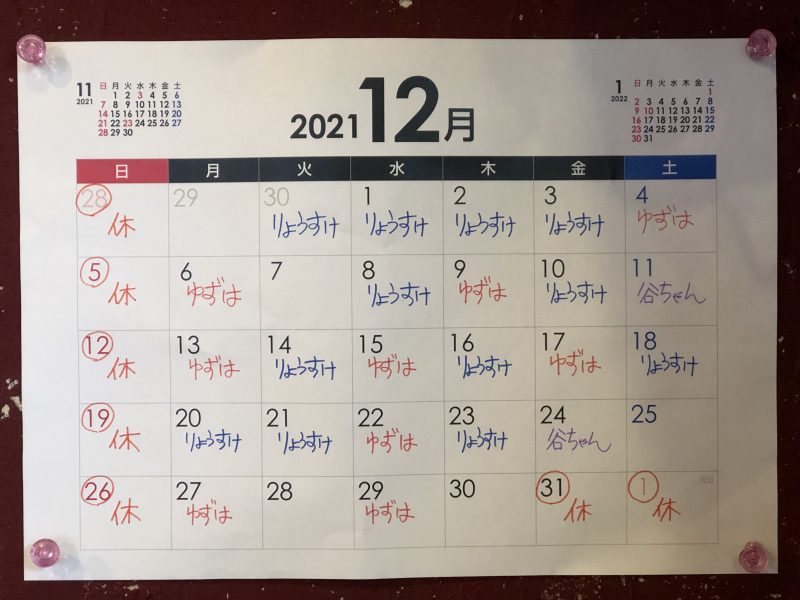 11
2021
日 月 火 水 木 金 土
1 2 3 4 5 6
7 8 9 10 11 12 13
14 15 16 17 18 19 20
21 22 23 24 25 26 27
28 29 30
2021 12月
1
2022
日 月 火 水 木 金 土
1
2 3 4 5 6 7 8
9 10 11 12 13 14 15
16 17 18 19 20 21 22
23 24 25 26 27 28 29
30 31
日 月 火 水 木 金 土
28 29 30 1 2 3 4
休 りょうすけ りょうすけ りょうすけ りょうすけ ゆずは
5 6 7 8 9 10 11
休 ゆずは りょうすけ ゆずは りょうすけ 谷ちゃん
12 13 14 15 16 17 18
休 ゆずは りょうすけ ゆずは りょうすけ ゆずは りょうすけ
19 20 21 22 23 24 25
休 りょうすけ りょうすけ ゆずは りょうすけ 谷ちゃん
26 27 28 29 30 31 1
休 ゆずは ゆずは 休 休